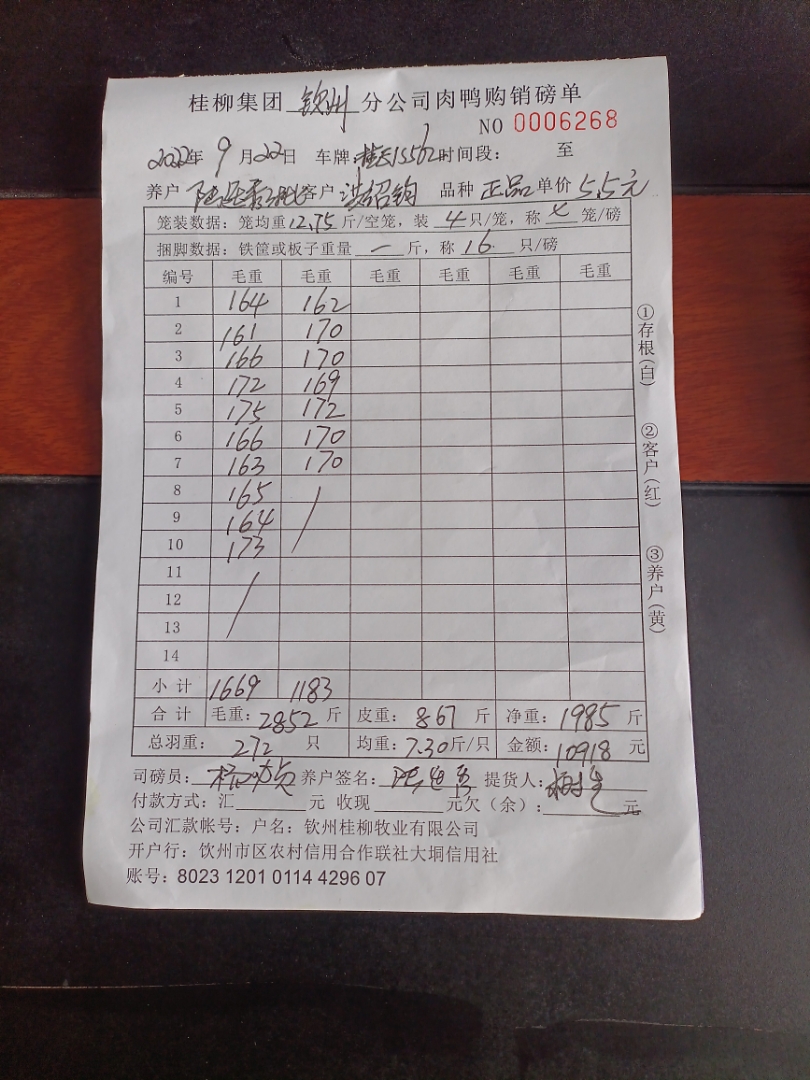 桂柳集团 钦州 分公司肉鸭购销磅单
NO 0006268
2022年 9 月22日 车牌: 时间段: 至
养户 客户: 洪绍钧 品种 正品 单价 5.5元
笼装数据: 笼均重12.75斤/空笼, 装 4 只/笼, 称 笼/磅
捆脚数据: 铁筐或板子重量 一 斤, 称 16 只/磅
编号 毛重 毛重 毛重 毛重 毛重 毛重
1 164 162
2 161 170
3 166 170
4 172 169
5 175 172
6 166 170
7 163 170
8 165
9 164
10 173
11
12
13
14
小计 1669 1183
合计 毛重: 2852 斤 皮重: 867 斤 净重: 1985 斤
总羽重: 272 只 均重: 7.30斤/只 金额: 10918 元
司磅员: 养户签名: 提货人:
付款方式: 汇 元 收现 元欠(余): 元
公司汇款帐号: 户名: 钦州桂柳牧业有限公司
开户行: 钦州市区农村信用合作联社大垌信用社
账号: 8023 1201 0114 4296 07
①存根(白)
②客户(红)
③养户(黄)